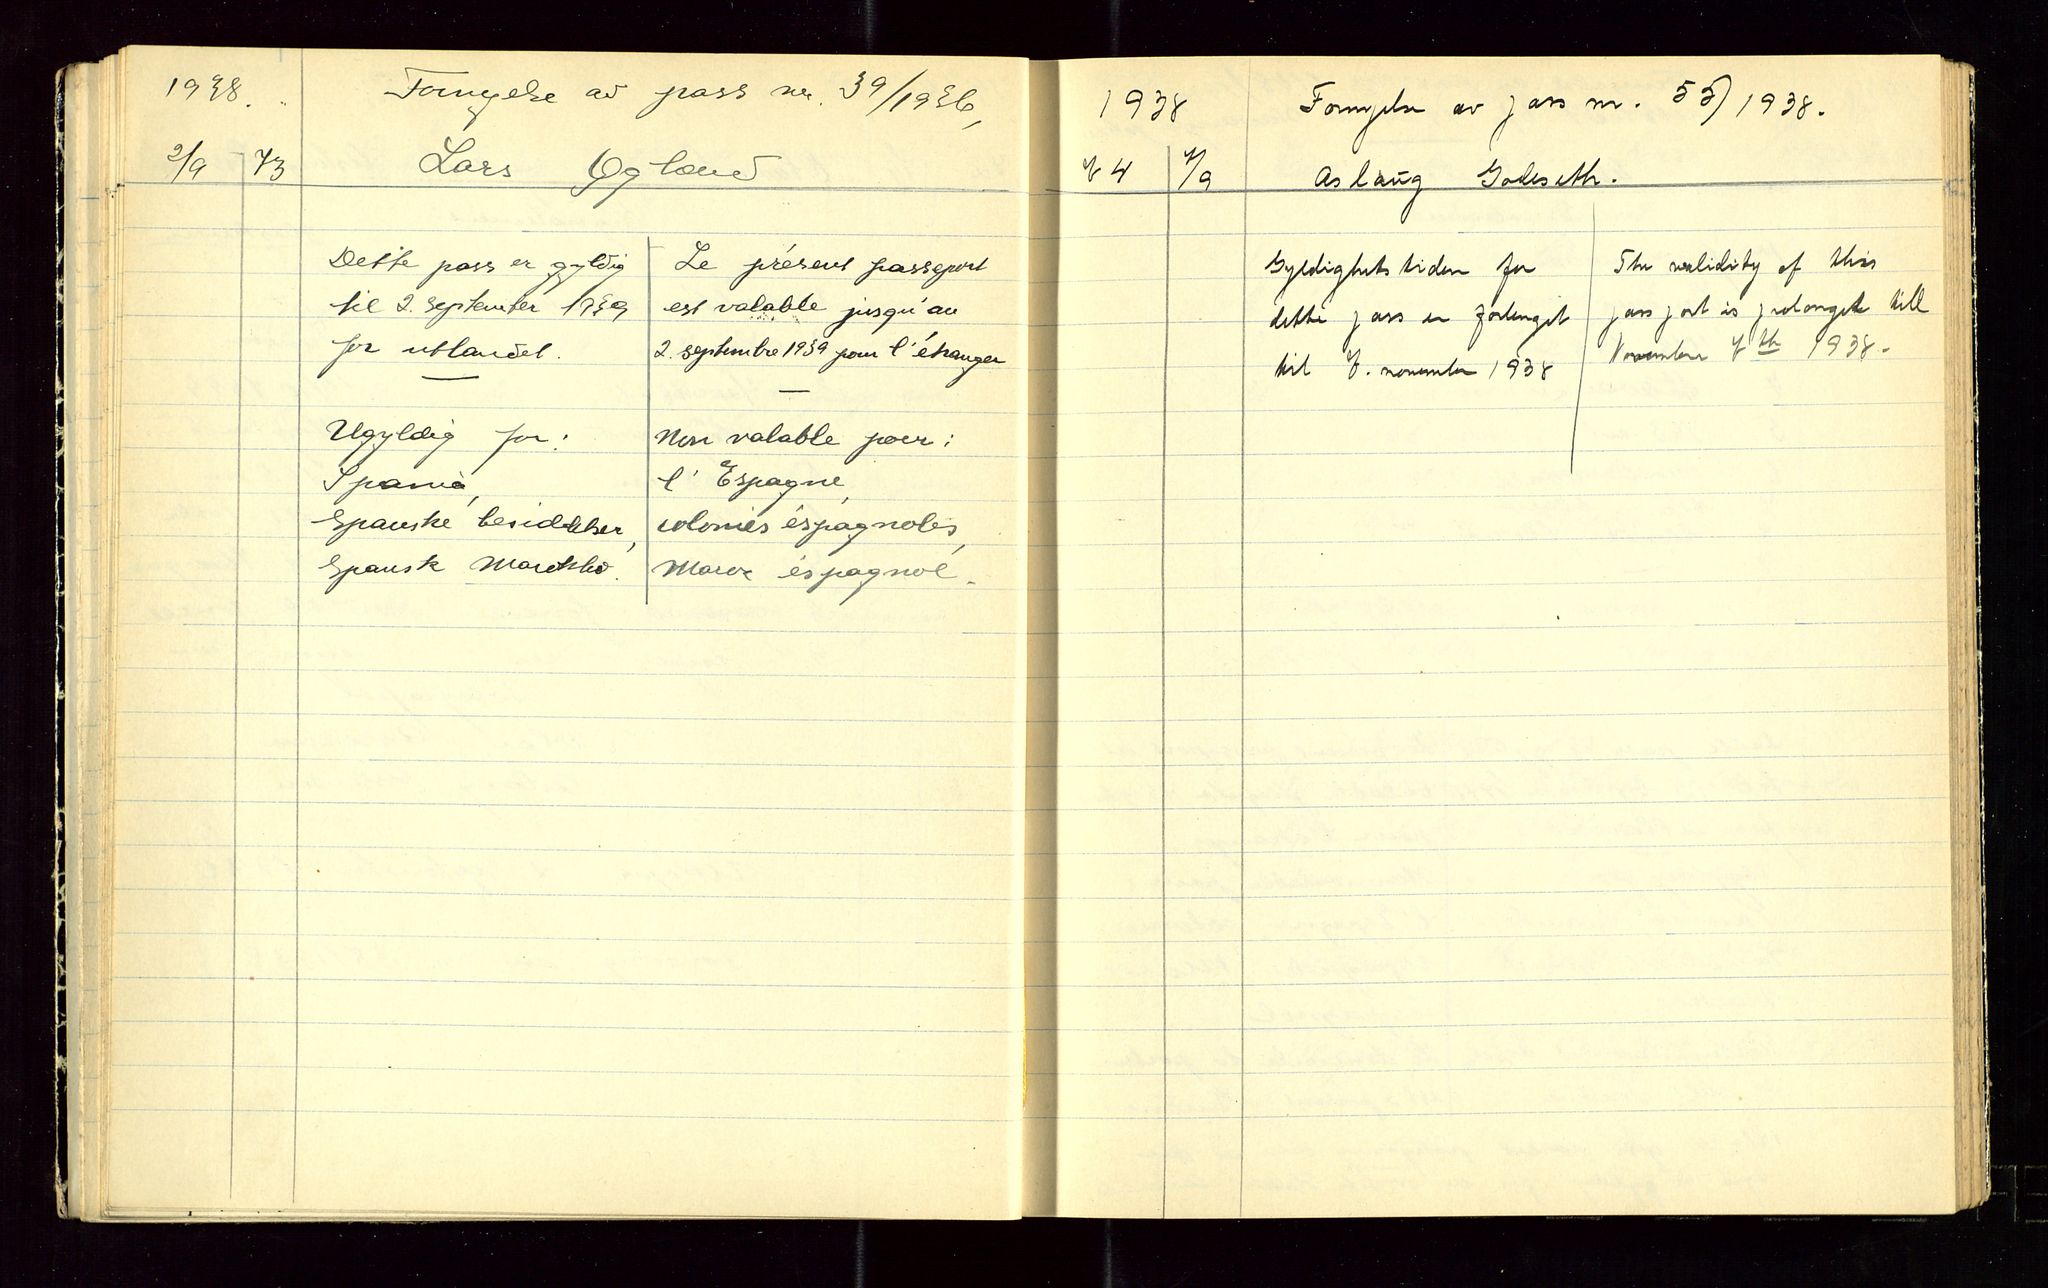 1938.
Fornyelse av pass nr. 39/1936,
2/9 73 Lars Ogland
Dette pass er gyldig
til 2. september 1939
for utlandet.
Ugyldig for:
Spania,
Spanske besiddelser,
Spansk Marokko.
Le présent passeport
est valable jusqu'au
2. septembre 1939 pour l'étranger
Non valable pour:
l'Espagne,
colonies éspagnoles,
Maroc éspagnol.
1938 Fornyelse av pass nr. 55/1938.
74 7/9 Aslaug Godeseth.
Gyldighetstiden for
dette pass er forlenget
til 7. november 1938
The validity of this
passport is prolonged till
November 7th 1938.